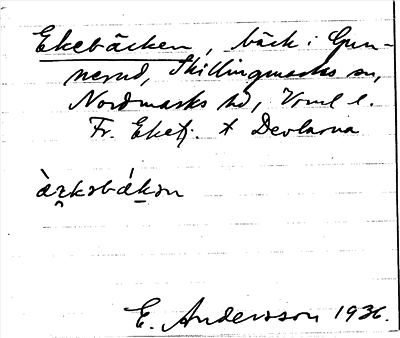 Ekebäcken, bäck i Gun-
nerud, Skillingmarks sn,
Nordmarks hd, Vrml l.
Fr. Ekefj. † Devlarna
E. Andersson 1936.